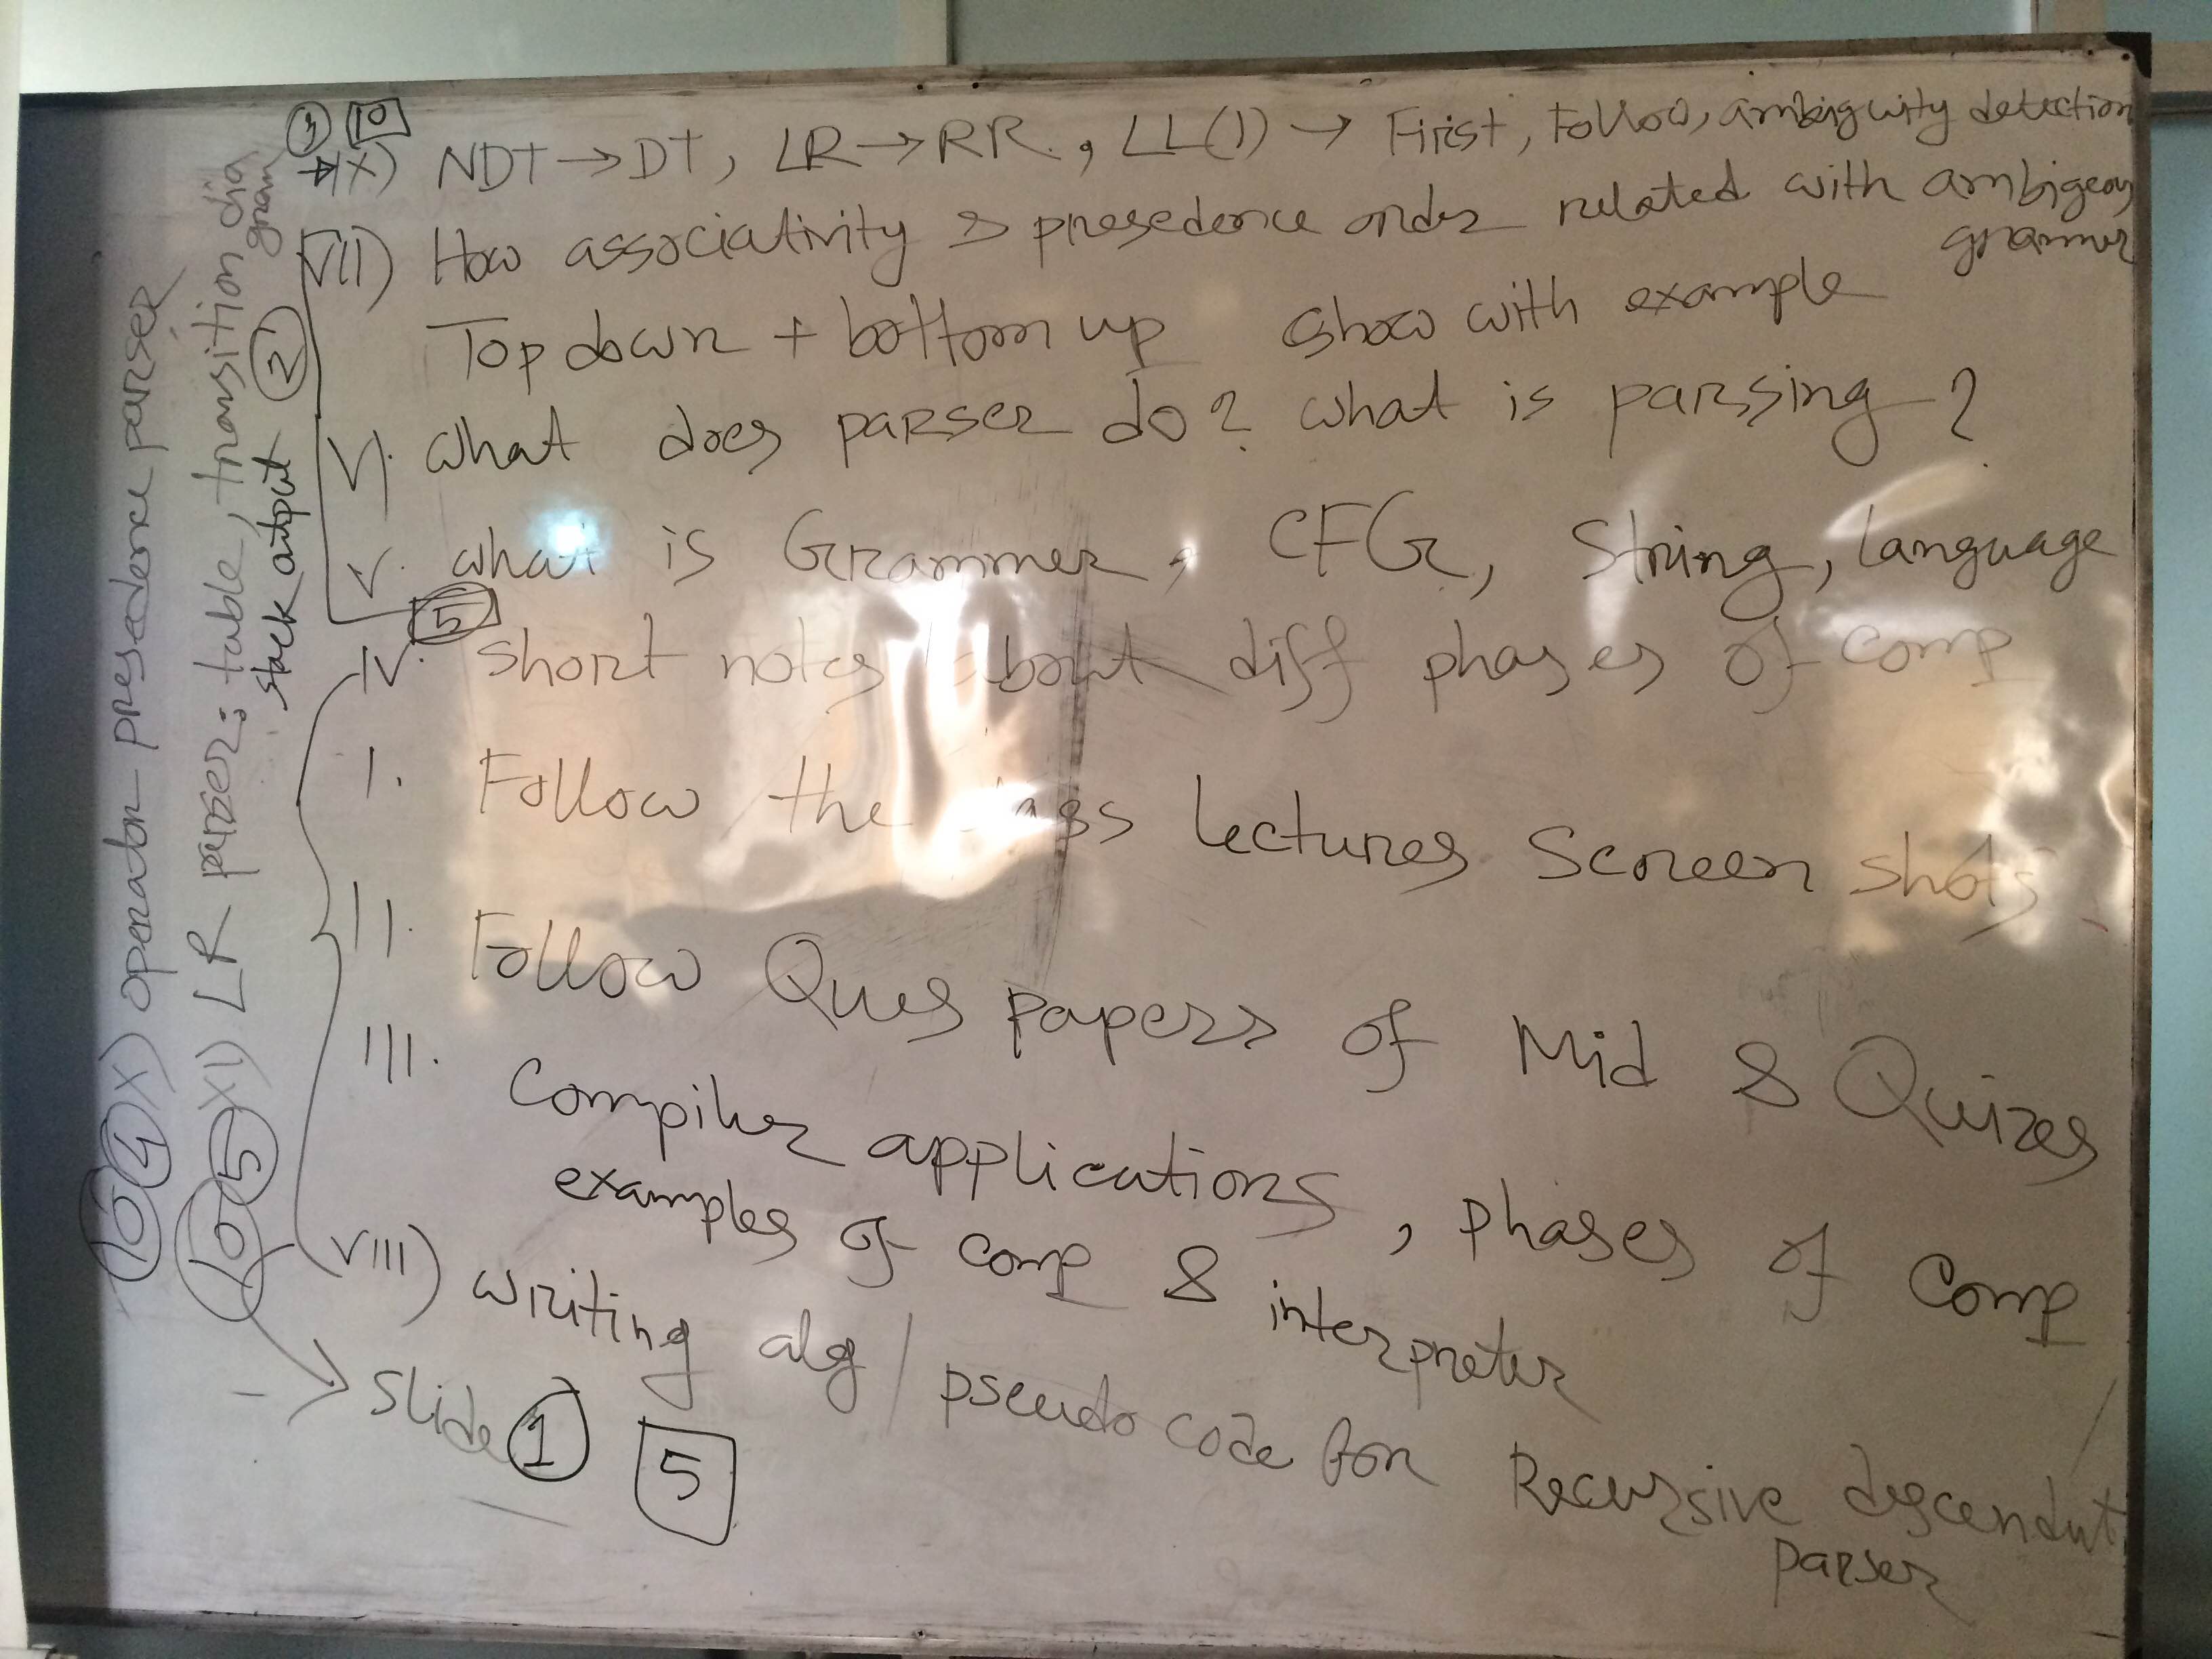 3 10
IX) NDT → DT, LR → RR, LL(1) → First, Follow, ambiguity detection
VII) How associativity & presedence order related with ambigeous
grammer
Top down + bottom up show with example
VI. what does parser do? what is parssing?
V. what is Grammer, CFG, String, language
5
IV. short notes about diff phases of comp
I. Follow the class lectures Screen shots
II. Follow Ques papers of Mid & Quizes
III. Compiler applications, phases of Comp
examples of comp & interpreter
VIII) writing alg / pseudo code for Recursive descendut
parser
Slide 1 5
10 4 X) operator-presedence parser
10 5 XI) LR parser: table, transition dia
gram
stack output 2